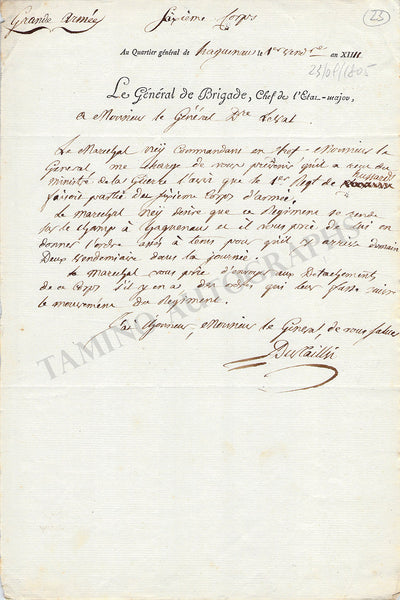 Grande Armée Sixième Corps 23
Au Quartier général de haguenau le 1er vend re en XIIII
23/09/1805
Le Général de Brigade, Chef de l'Etat-major,
a Monsieur le Général Don
Le Marechal Ney Commandant en chef Monsieur le
General me charge de vous prévenir qu'il a reçu du
ministre de la Guerre l'avis que le 1er Regt de hussards
faisoit partie du Sixieme Corps d'armée.
Le Marechal Ney desire que ce Regiment se rende
sur le champ a haguenau et il vous prie de lui en
donner l'ordre assés a tems pour qu'il y arrive demain
Deux Vendemiaire dans la journée.
Le Marechal vous prie d'envoyer aux Detachements
de ce Corps s'il y en a des ordres qui leur fasse suivre
le mouvement du Regiment.
J'ai l'honneur, Monsieur le Général, de vous saluer
Dutaillis
TAMINO AUTOGRAPHS